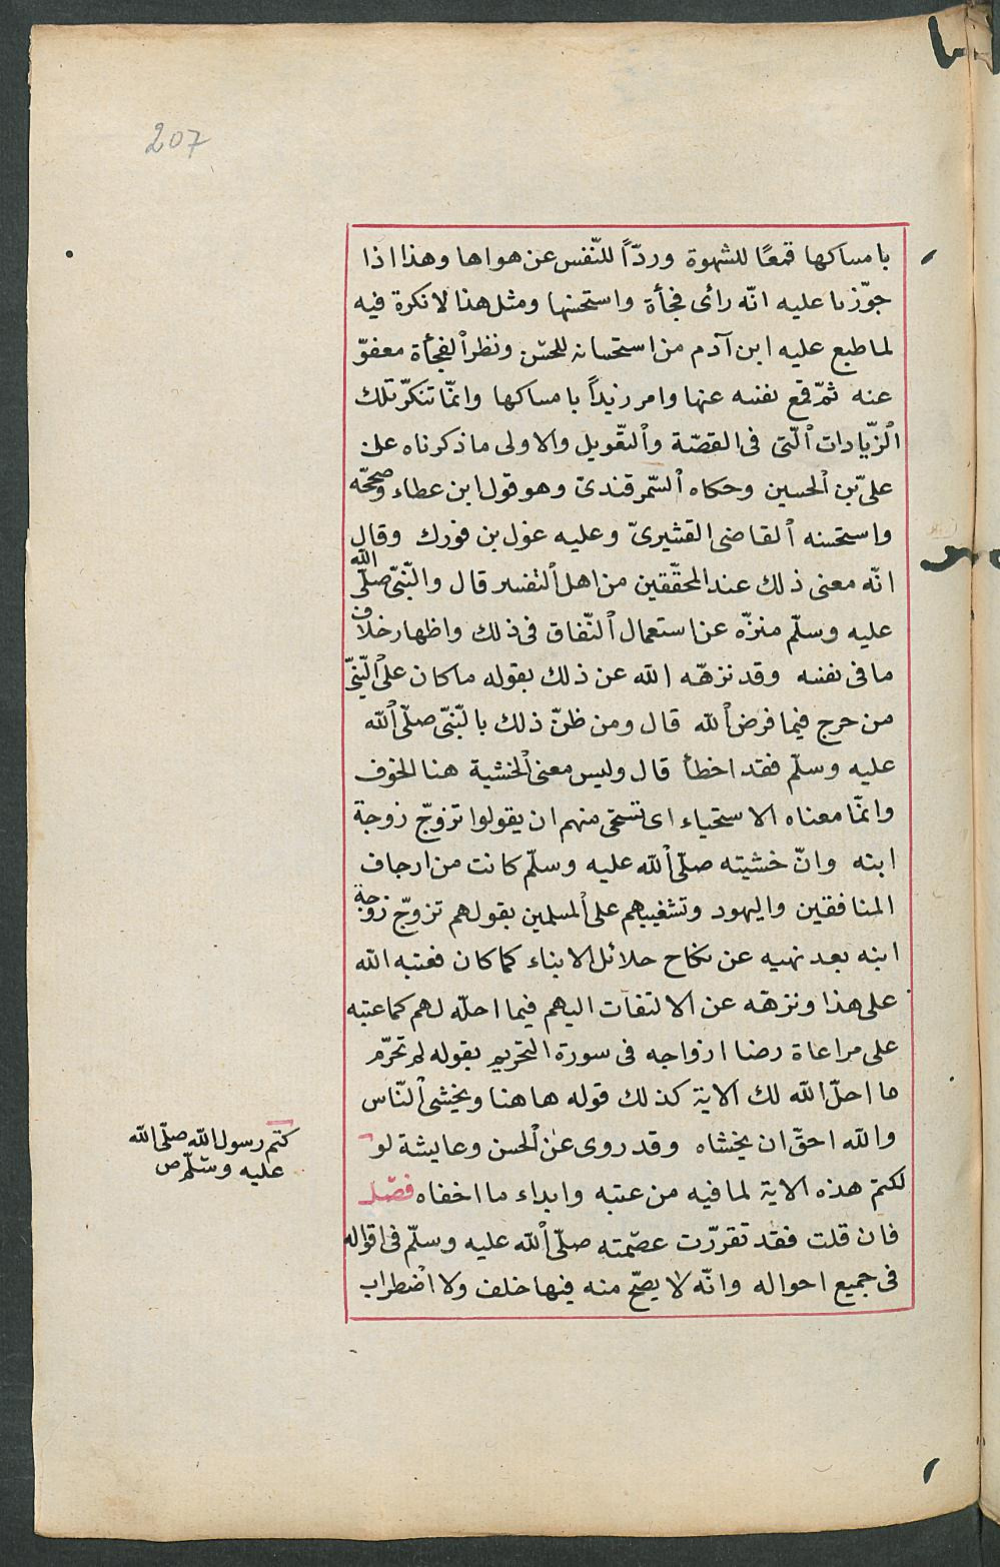 207
بامساكها قمعًا للشهوة وردّاً للنّفس عن هواها وهذا اذا
جوّزنا عليه انّه رأى فجأة واستحسنها ومثل هذا لا نكرة فيه
لما طبع عليه ابن آدم من استحسانه للحسن ونظر الفجأة معفوّ
عنه ثمّ قمع نفسه عنها وامر زيداً بامساكها وانّما تنكّر تلك
الزّيادات الّتى فى القصّة والتّعويل والاولى ما ذكرناه عن
علىّ بن الحسين وحكاه السّمرقندىّ وهو قول ابن عطاء وصححّه
واستحسنه القاضى القشيرىّ وعليه عوّل بن فورك وقال
انّه معنى ذلك عند المحقّقين من اهل التفسير قال والنّبىّ صلّى الله
عليه وسلّم منزّه عن استعمال النّفاق فى ذلك واظهار خلاف
ما فى نفسه وقد نزّهه الله عن ذلك بقوله ما كان على النّبىّ
من حرج فيما فرض الله قال ومن ظنّ ذلك بالنّبىّ صلّى الله
عليه وسلّم فقد اخطأ قال وليس معنى الخشية هنا الخوف
وانّما معناه الاستحياء اى تستحى منهم ان يقولوا تزوّج زوجة
ابنه وانّ خشيته صلّى الله عليه وسلّم كانت من ارجاف
المنافقين واليهود وتشغيبهم على المسلمين بقولهم تزوّج زوجة
ابنه بعد نهيه عن نكاح حلائل الابناء كما كان فعتبه الله
على هذا ونزهّه عن الالتفات اليهم فيما احلّه لهم كما عتبه
على مراعاة رضا ازواجه فى سورة التحريم بقوله لم تحرّم
ما احلّ الله لك الاية كذلك قوله هاهنا ويخشى النّاس
والله احقّ ان يخشاه وقد روى عن الحسن وعايشة لو
لكتم هذه الاية لما فيه من عتبه وابداء ما اخفاه فصّل
فان قلت فقد تقرّرت عصّمته صلّى الله عليه وسلّم فى اقواله
فى جميع احواله وانّه لا يصحّ منه فيها خلف ولا اضطراب
كتم رسول الله صلّى الله
عليه وسلّم ص